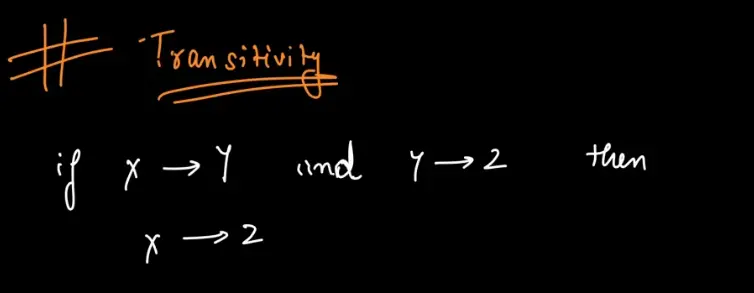 # Transitivity
if X → Y and Y → Z then
X → Z